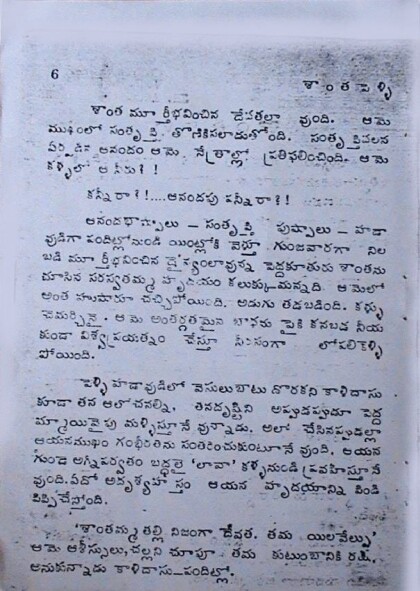 6
శాంత పెళ్ళి
శాంత మూర్తీభవించిన దేవతల్లా వుంది. ఆమె
ముఖంలో సంతృప్తి తొణికిసలాడుతోంది. సంతృప్తివలన
ఏర్పడిన ఆనందం ఆమె నేత్రాల్లో ప్రతిఫలించింది. ఆమె
కళ్ళలో ఆ నీరు?!
కన్నీరా?!....ఆనందపు పన్నీరా?!
ఆనందభాష్పాలు — సంతృప్తి పుష్పాలు — హడా
వుడిగా పందిట్లోనుండి యింట్లోకి వెళ్తూ గుంజవారగా నిల
బడి మూర్తీభవించిన దైన్యంలావున్న పెద్దకూతురు శాంతను
చూసిన సరస్వతమ్మ హృదయం కలుక్కుమన్నది. ఆమెలో
అంత హుషారూ చచ్చిపోయింది. అడుగు తడబడింది. కళ్ళు
చెమర్చినై. ఆమె అంతర్గతమైన బాధను పైకి కనబడ నీయ
కుండా విశ్వప్రయత్నం చేస్తూ నీరసంగా లోపలికెళ్ళి
పోయింది.
పెళ్ళి హడావుడిలో వెసులుబాటు దొరకని కాళిదాసు
కూడా తన ఆలోచనల్ని, తనదృష్టిని అప్పుడప్పుడూ పెద్ద
మ్మాయివైపు మళ్ళిస్తూనే వున్నాడు. అలా చేసినప్పుడల్లా
ఆయనముఖం గంభీరతను సంతరించుకుంటూనే వుంది. ఆయన
గుండె అగ్నిపర్వతం బద్ధలై 'లావా' కళ్ళనుండి ప్రవహిస్తూనే
వుంది. ఏదో అదృశ్యహస్తం ఆయన హృదయాన్ని పిండి
పిప్పిచేస్తోంది.
'శాంతమ్మతల్లి నిజంగా దేవత. తమ యిలవేల్పు'
ఆమె ఆశీస్సులు, చల్లని చూపూ తమ కుటుంబానికి రక్ష.
అనుకున్నాడు కాళిదాసు—పందిట్లో.